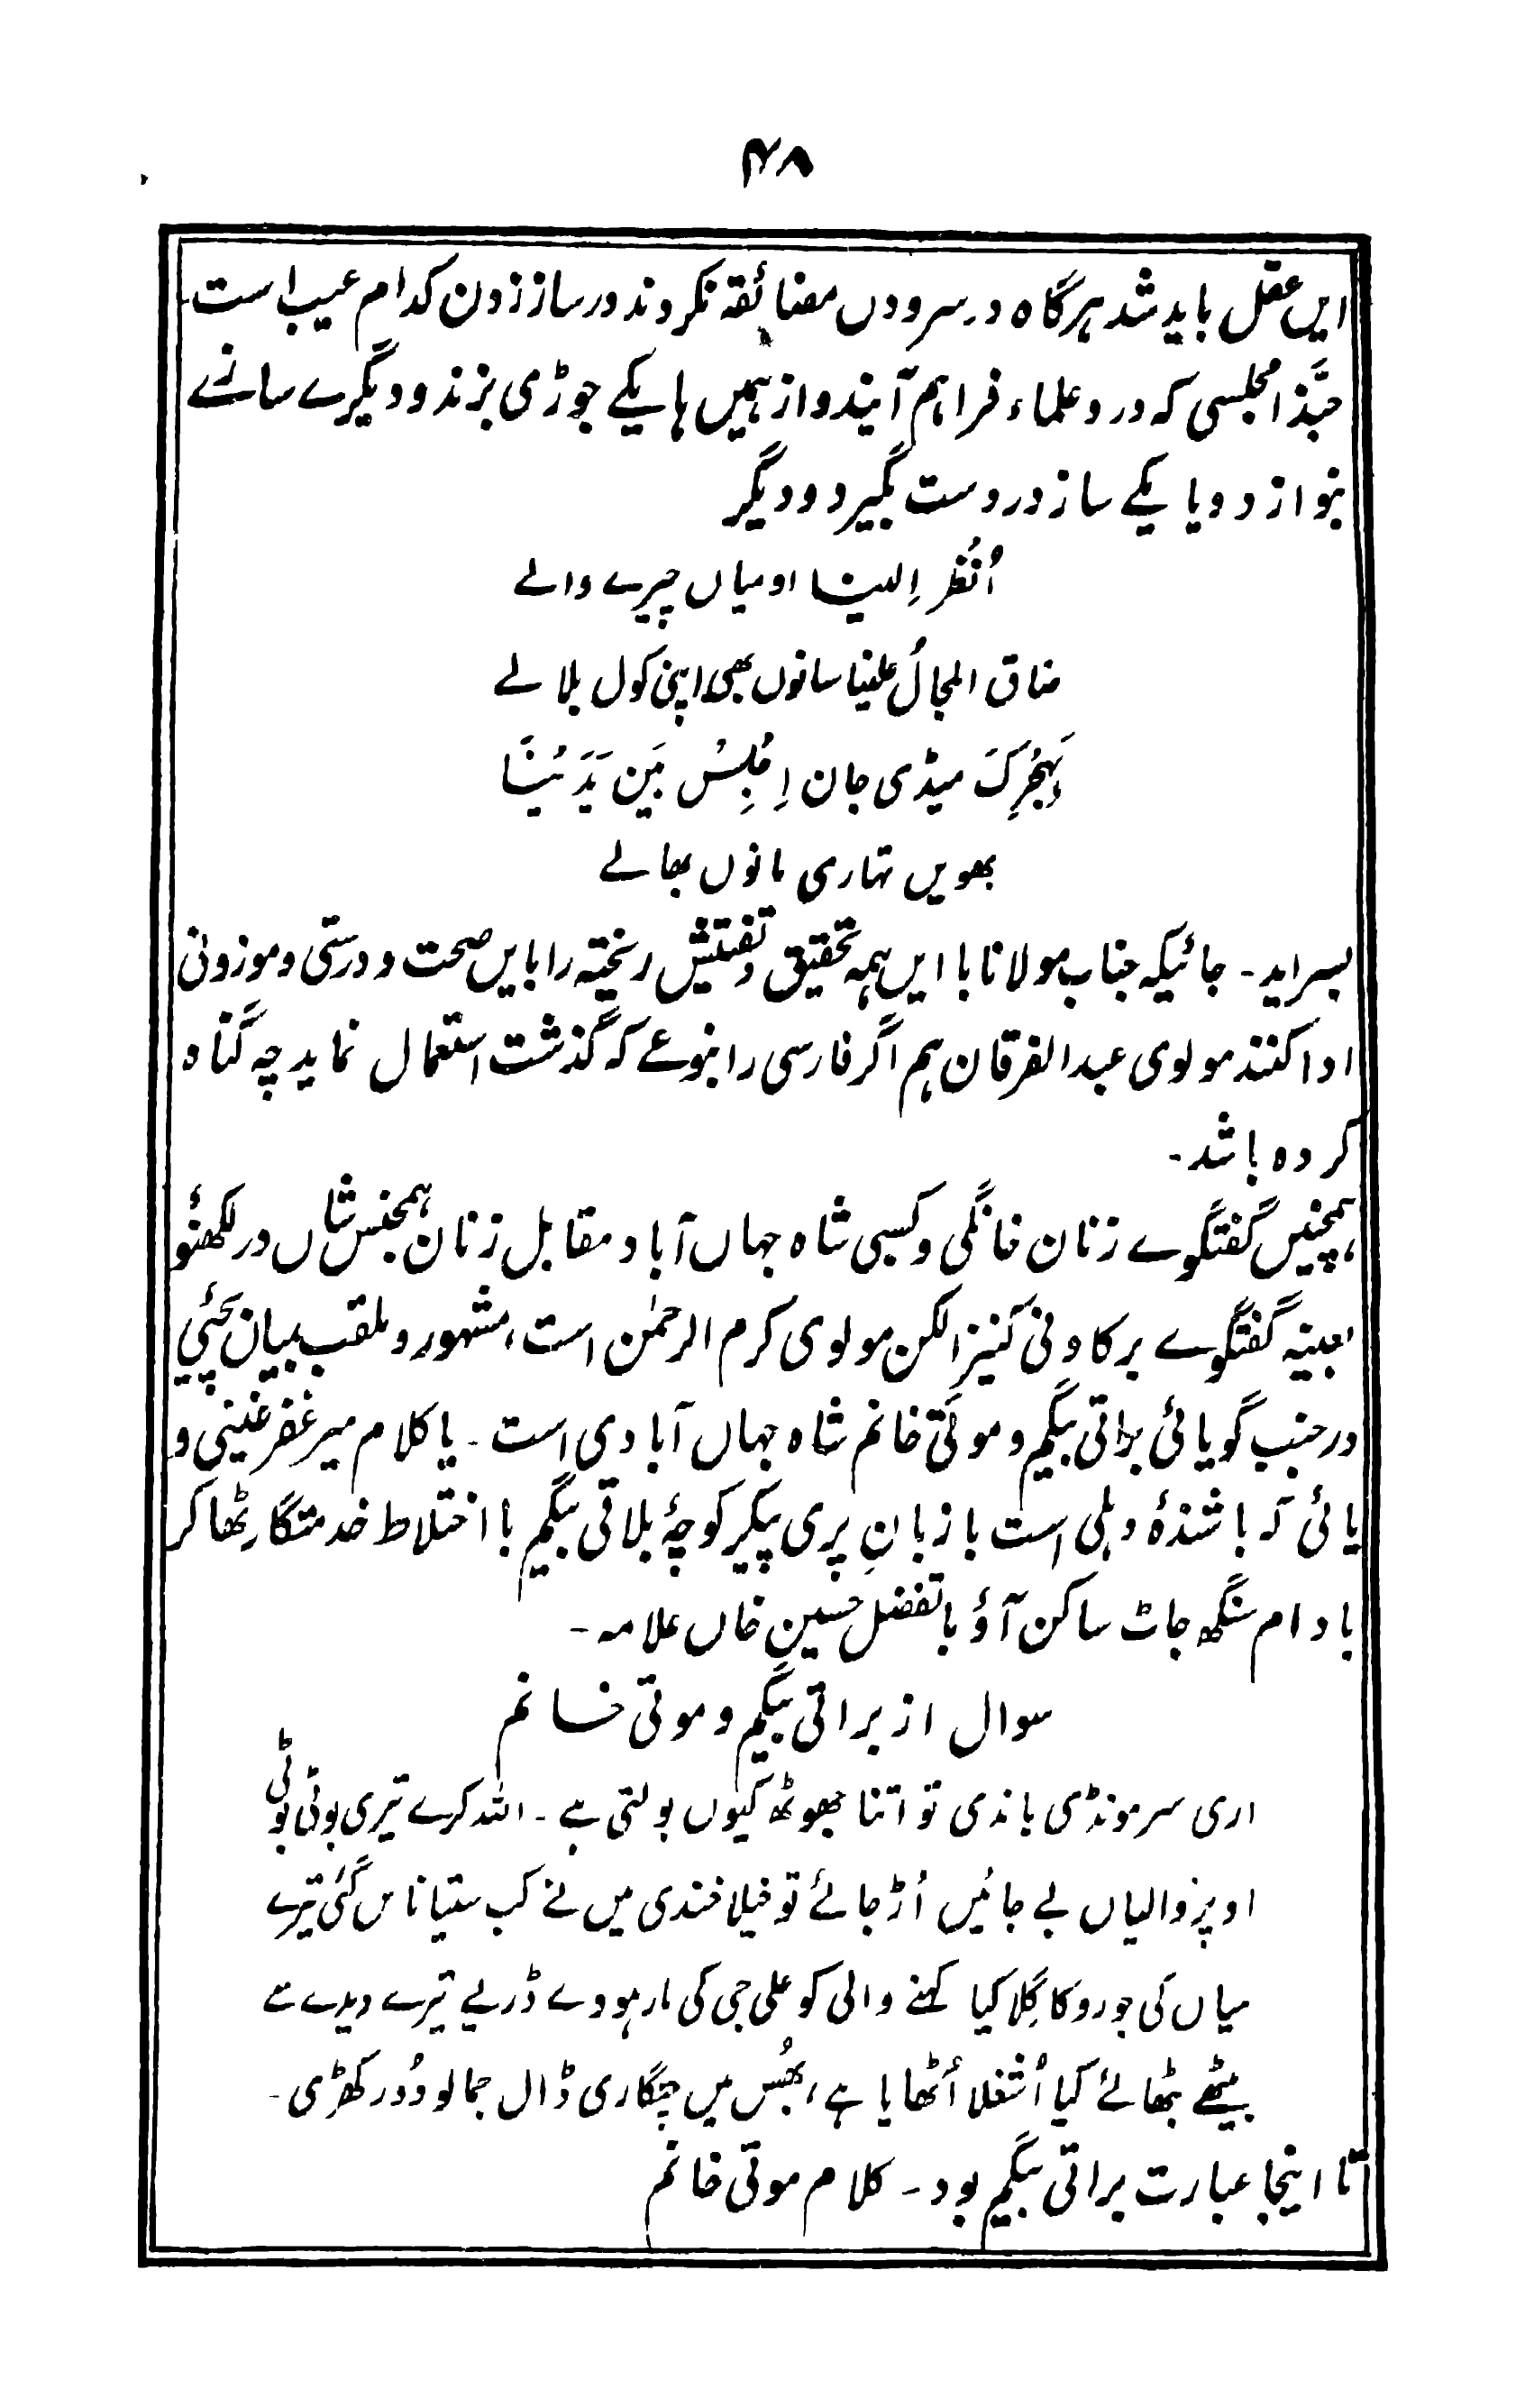 ۴۸
ایں عقل باید شد ہرگاہ در سرودں مضائقہ نکردند در ساز زدن کدام عیب است۔
حبَّذا مجلسی کہ در و علماء فراہم آیند و از ہمیں ہا یکے جوڑی بزند و دیگرے سازے
بنوازد و یا یکے ساز در دست بگیرد و دیگر
اُنْظُر اِلینا او میاں چیرے والے
ضاق المجالُ علینا سانوں بھی اپنی کول بلا لے
بِہَجْرِکَ میڈی جان اِجْلِسْ بَین یَدَیْنَا
بھویں تہاری مانوں بھالے
بسراید۔ جائیکہ جناب مولانا با ایں ہمہ تحقیق و تفتیش ریختہ را بایں صحت و درستی و موزونی
ادا کنند مولوی عبدالفرقان ہم اگر فارسی را بنوعے کہ گذشت استعمال نماید چہ گناہ
کردہ باشد۔
ہمچنیں گفتگوے زنان خانگی و کسبی شاہ جہاں آباد مقابل زنان ہمجنس شاں در لکھنؤ
بعینہ گفتگوے برکاونی کنیز الکن مولوی کرم الرحمٰن است، مشہور و ملقب بیان
در جنب گویائی براتی بیگم و موتی خانم شاہ جہاں آبادی است۔ یا کلام میر غفر غینی و
یائی کہ باشندۂ دہلی است با زبانِ پری پیکر کوچۂ بلاقی بیگم با اختلاط خدمتگار ٹھاکر
بادام سنگھ جاٹ ساکن آؤ با تفضل حسین خاں علامہ۔
سوال از براتی بیگم و موتی خانم
اری سرمونڈی باندی تو اتنا جھوٹھ کیوں بولتی ہے۔ اللہ کرے تیری بوٹی بوٹی
اوپر والیاں لے جائیں اُڑ جائے تو خیلا خندی میں نے کب ستیاناس گئی تیرے
میاں کی جورو کا گِلا کیا کہنے والی کو علی جی کی مار ہووے ڈریے تیرے دیدے سے
بیٹھے بٹھائے کیا اُشغلا اُٹھایا ہے، بھُس میں چنگاری ڈال جمالو دُور کھڑی۔
تا اینجا عبارت براتی بیگم بود۔ کلام موتی خانم